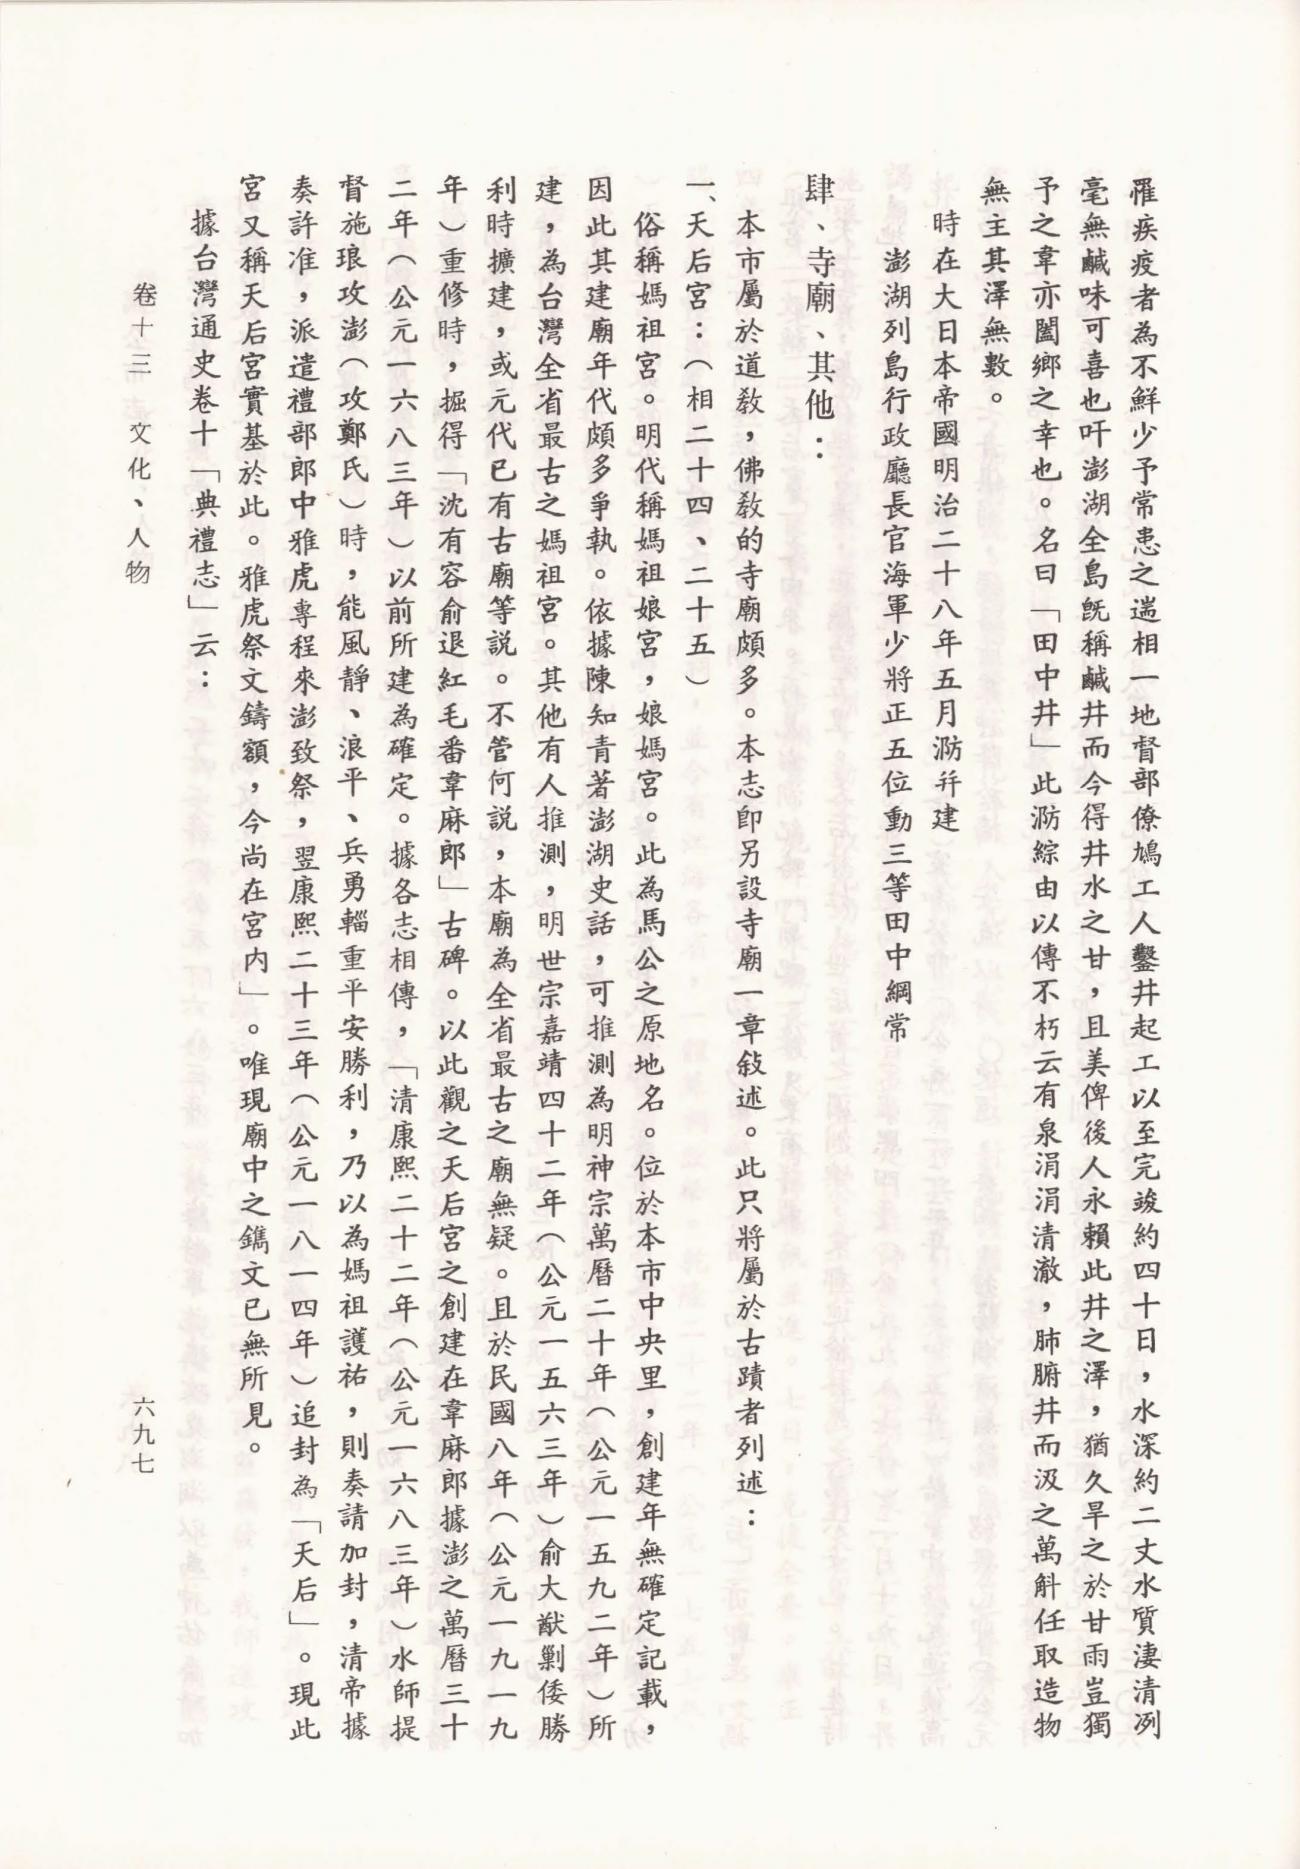 罹疾疫者為不鮮少予常患之遄相一地督部僚鳩工人鑿井起工以至完竣約四十日，水深約二丈水質淒清冽
毫無鹹味可喜也吁澎湖全島旣稱鹹井而今得井水之甘，且美俾後人永賴此井之澤，猶久旱之於甘雨豈獨
予之韋亦闔鄉之幸也。名曰「田中井」此泐綜由以傳不朽云有泉涓涓清澈，肺腑井而汲之萬斛任取造物
無主其澤無數。
時在大日本帝國明治二十八年五月泐幷建
澎湖列島行政廳長官海軍少將正五位動三等田中綱常
肆、寺廟、其他：
本市屬於道教，佛教的寺廟頗多。本志卽另設寺廟一章敍述。此只將屬於古蹟者列述：
一、天后宮：（相二十四、二十五）
俗稱媽祖宮。明代稱媽祖娘宮，娘媽宮。此為馬公之原地名。位於本市中央里，創建年無確定記載，
因此其建廟年代頗多爭執。依據陳知青著澎湖史話，可推測為明神宗萬曆二十年（公元一五九二年）所
建，為台灣全省最古之媽祖宮。其他有人推測，明世宗嘉靖四十二年（公元一五六三年）俞大猷剿倭勝
利時擴建，或元代已有古廟等説。不管何説，本廟為全省最古之廟無疑。且於民國八年（公元一九一九
年）重修時，掘得「沈有容俞退紅毛番韋麻郎」古碑。以此觀之天后宮之創建在韋麻郎據澎之萬曆三十
二年（公元一六八三年）以前所建為確定。據各志相傳，「清康熙二十二年（公元一六八三年）水師提
督施琅攻澎（攻鄭氏）時，能風靜、浪平、兵勇輜重平安勝利，乃以為媽祖護祐，則奏請加封，清帝據
奏許准，派遣禮部郎中雅虎專程來澎致祭，翌康熙二十三年（公元一八一四年）追封為「天后」。現此
宮又稱天后宮實基於此。雅虎祭文鑄額，今尚在宮內」。唯現廟中之鐫文已無所見。
據台灣通史卷十「典禮志」云：
卷十三　文化、人物
六九七